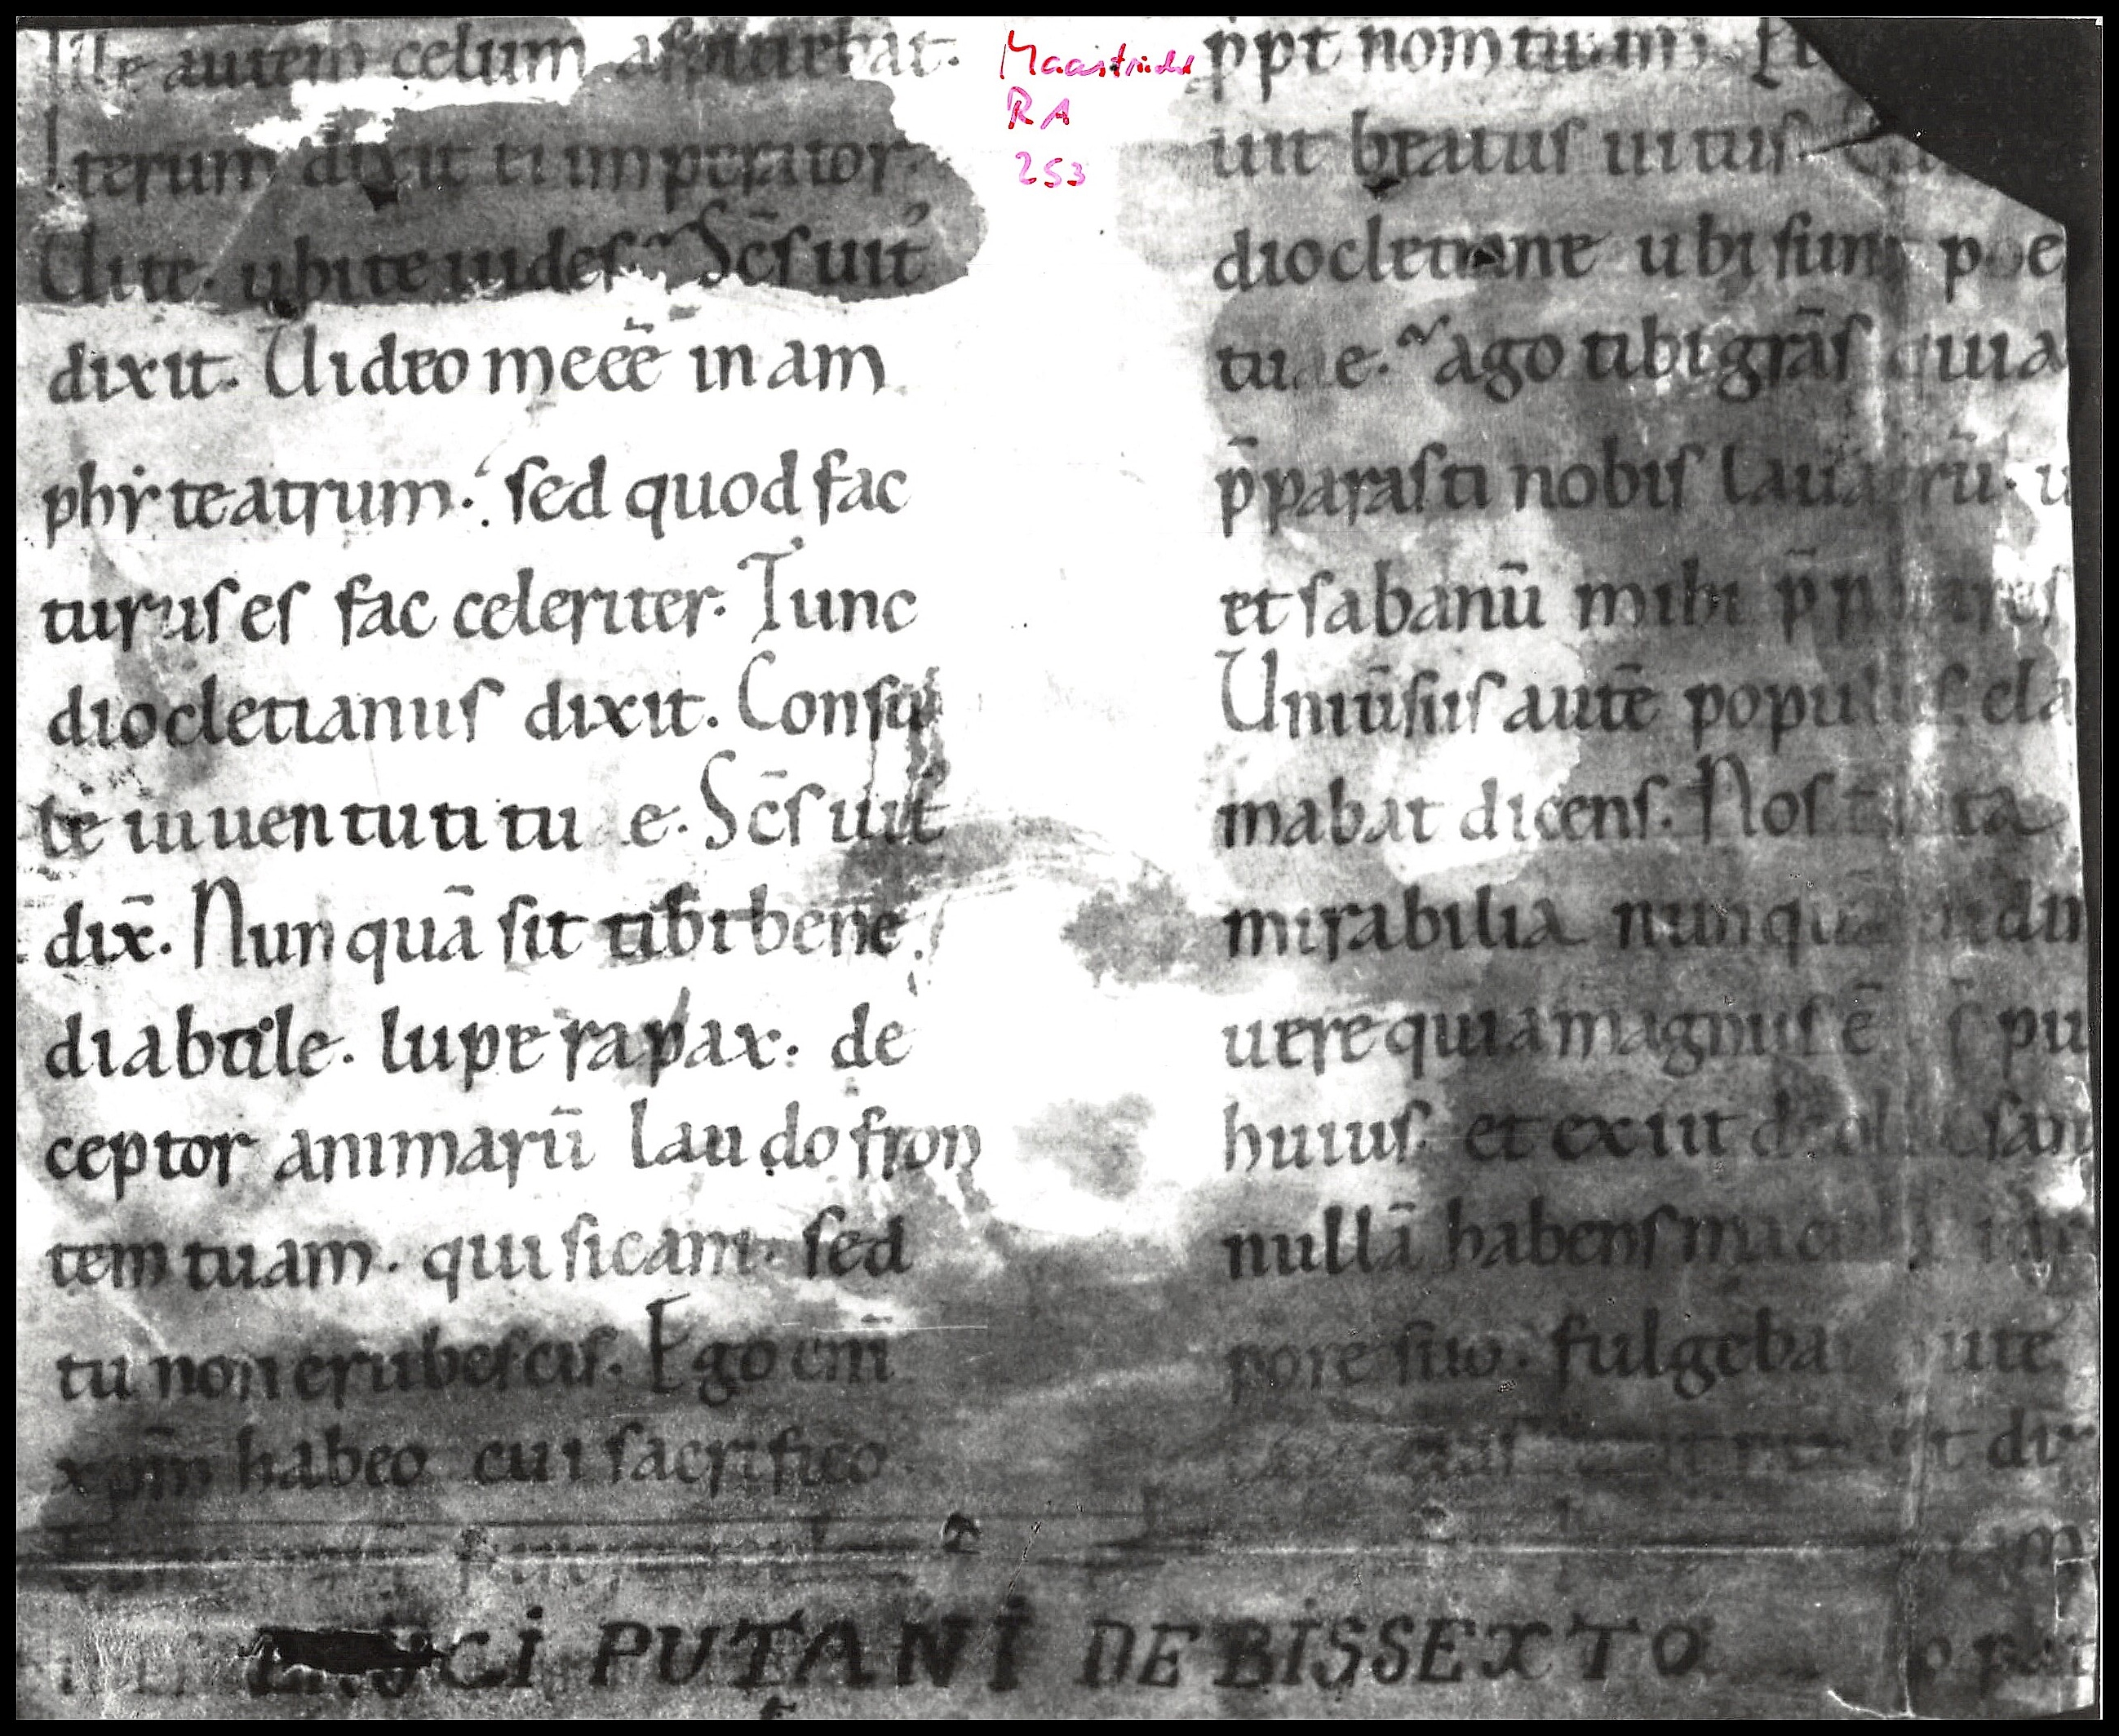 Ille autem celum aspiciebat.
Iterum dixit ei imperator.
Uite. ubi te uides. Scs uit
dixit. Uideo me eē in am
phyteatrum. sed quod fac
turus es fac celeriter. Tunc
diocletianus dixit. Consu
le iuuentuti tu e. Scs uit
dix̄. Nunquā sit tibi bene
diabule. lupe rapax. de
ceptor animarū laudo fron
tem tuam. qui sicam. sed
tu non erubescis. Ego eni
xpm habeo cui sacrifico
Maastricht
RA
253
ppt nom tuum.
uit beatus uitus.
diocletiane ubi sunt poe
tu e. ago tibi grās quia
p̄parasti nobis lauacrū. u
et sabanū mihi p̄parares
Uniūsus autē populus cla
mabat dicens. Nos tanta
mirabilia nunquā uidi
uere quia magnus ē ds pu
huius. et exiit de olla san
nullā habens macula
pore suo. fulgebat
CI PUTANI DE BISSEXTO